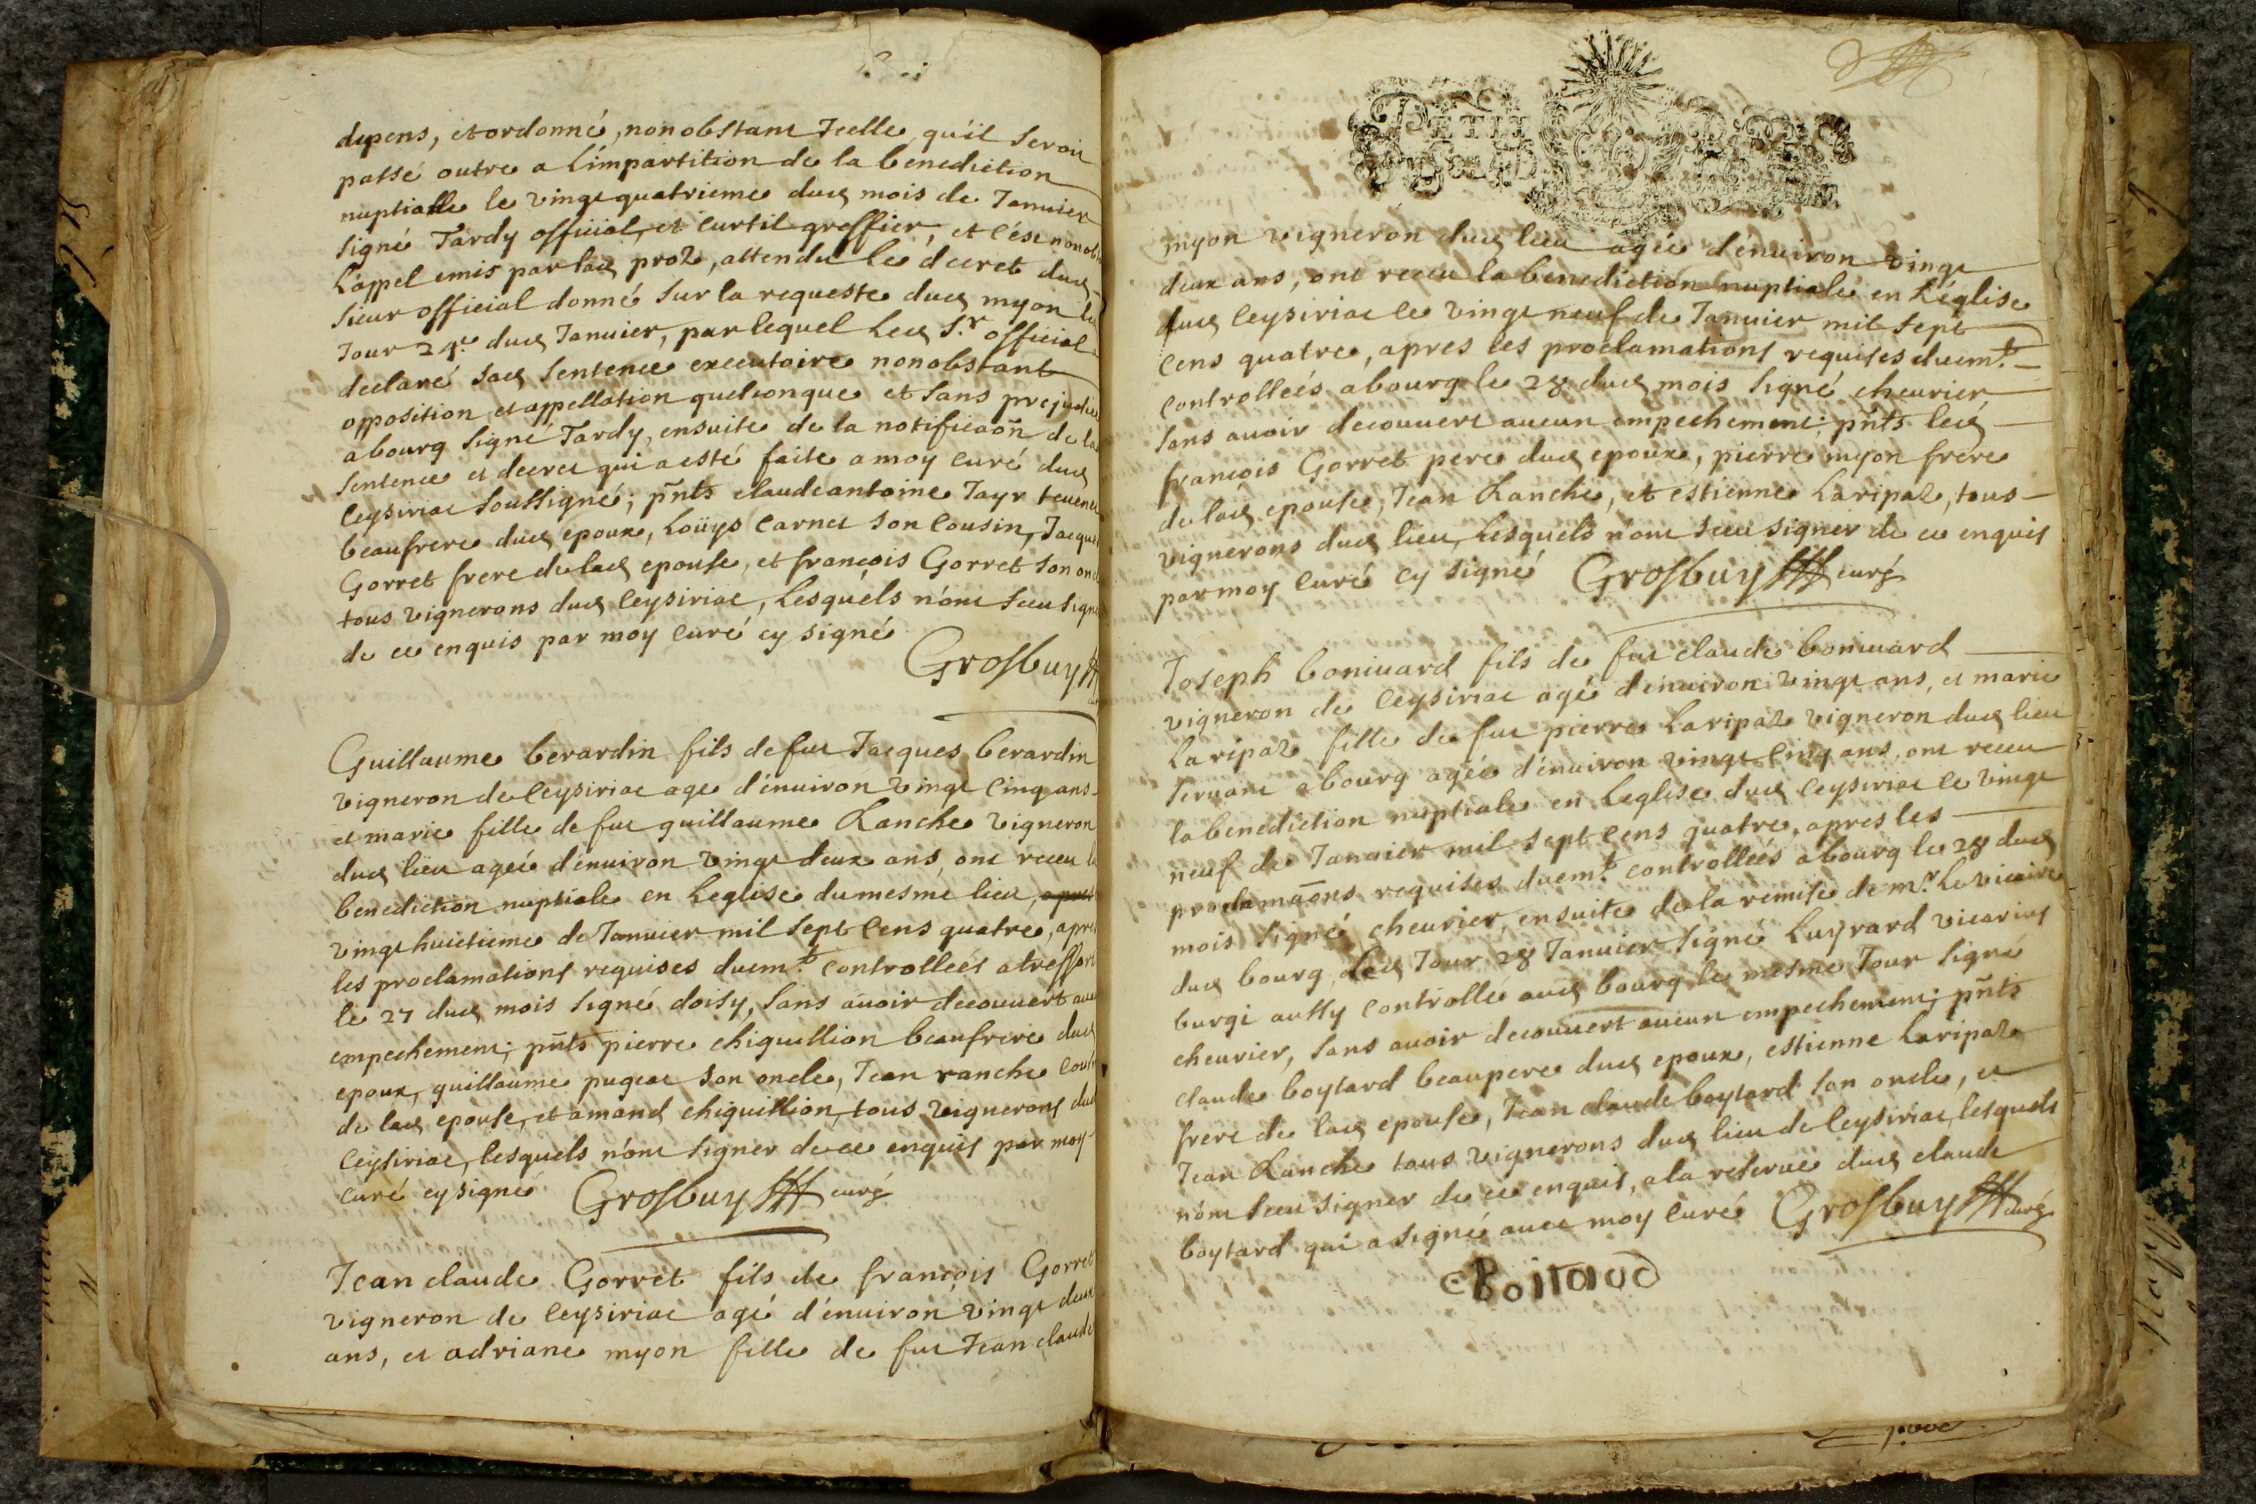 depens, et ordonné, nonobstant Icelle qu'il seroit
passé outre a L'impartition de la benediction
nuptialle le vingt quatrieme dud mois de Janvier
signé Tardy official, et curtil greffier, et c'est nonobs
L'appel emis par lad proz, attendu Le decret dud
sieur official donné sur la requeste dud myon le
Jour 24e dud Janvier, par lequel Led S.r official
declaré sad sentence executoire nonobstant
opposition et appellation quelconque et sans prejudice
a bourg signé Tardy, ensuite de la notificaõn de lad
sentence et decret qui a esté faite a moy curé dud
Ceysiriat soussigné; pñts claude antoine Tayr
beaufrere dud epoux, Loüys Carnet son Cousin, Jacque
Gorret frere de lad epouse, et françois Gorret son oncl
tous vignerons dud Ceysiriat, Lesquels n'ont sceu signe
de ce enquis par moy curé cy signé
Grosbuy
Guillaume berardin fils de fut Jacques berardin
vigneron de Ceysiriat age d'enuiron vingt Cinq ans
et marie fille de fut guillaume Ranche vigneron
dud lieu ageé d'enuiron vingt deux ans, ont receu la
benediction nuptiale en Leglise du mesme lieu, apres
vingt huictieme de Januier mil sept Cens quatre, apres
les proclamations requises duem.t controlleés a treffort
le 27 dud mois signé doisy, sans auoir decouuert aucu
empechement; pñts pierre chiguillion beaufrere dud
epoux, guillaume pugeat son oncle, Jean ranche Cousin
de lad epouse, et amand chiguillion, tous vignerons dud
Ceysiriat, lesquels n'ont signer de ce enquis par moy
curé cy signé Grosbuy curé
Jean claude Gorret fils de françois Gorret
vigneron de Ceysiriat agé d'enuiron vingt deux
ans, et adriane myon fille de fut Jean claude
myon vigneron dud lieu ageé d'enuiron vingt
deux ans, ont receu la benediction nuptiale en L'église
dud Ceysiriat le vingt neuf de Januier mil sept
Cens quatre, apres les proclamations requises duem.t
controlleés a bourg le 28 dud mois signé cheurier
sans auoir decouuert aucun empechement; pñts led
françois Gorret pere dud epoux, pierre myon frere
de lad epouse, Jean Ranche, et estienne Laripaz, tous
vignerons dud lieu, Lesquels n'ont sceu signer de ce enquis
par moy curé cy signé Grosbuy curé
Joseph boniuard fils de fut claude boniuard
vigneron de Ceysiriat agé d'enuiron vingt ans, et marie
Laripaz fille de fut pierre Laripaz vigneron dud lieu
seruant a bourg ageé d'enuiron vingt Cinq ans, ont receu
la benediction nuptiale en Leglise dud Ceysiriat le vingt
neuf de Januier mil sept Cens quatre, apres les
proclamãons requises duem.t controlleés a bourg le 28 dud
mois signé cheurier, ensuite de la remise de m.r Le vicaire
dud bourg, dud Jour 28 Januier signé Luyrard vicarius
burgi aussy controllé aud bourg le mesme Jour signé
cheurier, sans auoir decouuert aucun empechement; pñts
claude boytard beaupere dud epoux, estienne Laripaz
frere de lad epouse, Jean claude boytard son oncle, et
Jean Ranche tous vignerons dud lieu de Ceysiriat, lesquels
n'ont sceu signer de ce enquis, a la reserue dud claude
boytard qui a signé auec moy curé Grosbuy curé
C Boitaud